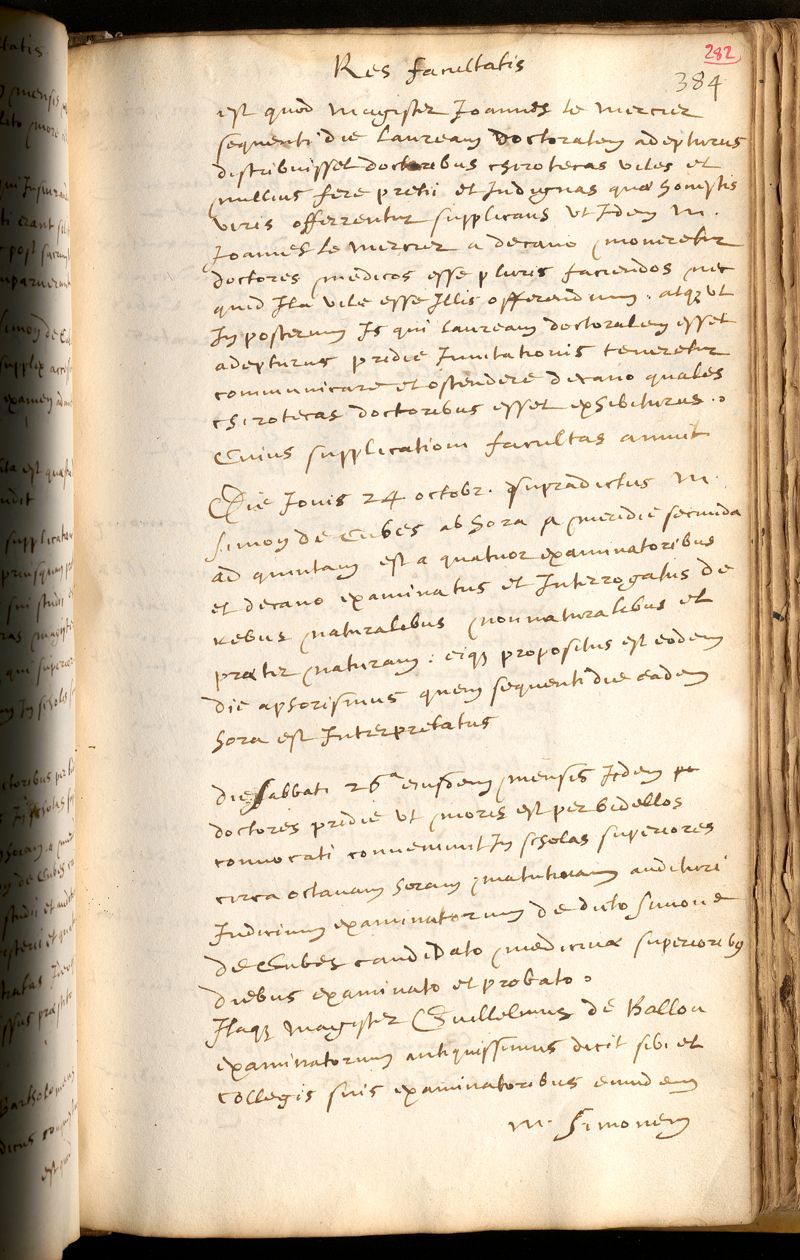 282
Res facultatis
384
est quod Magister Joannes le Mercier
sequenti die Lauream Doctoralem adepturus
distribuisset doctoribus chirotecas viles et
nullius fere pretii et Indignas quæ honestis
viris offerrentur supplicans ut Idem M.
Joannes le Mercier a decano moneretur
doctores medicos esse pluris faciendos nec
quid Ita vile esse Illis offerendum. atq; ut
In posterum Is qui lauream doctoralem esset
adepturus pridie Invitationis teneretur
communicare et ostendere decano quales
chirotecas doctoribus esset exhibiturus.
Cuius supplicationi facultas annuit
Die Jovis 24 octobr. supradictus M.
Simon de Cubes ab hora p meridie secunda
ad quintam est a quatuor examinatoribus
et decano examinatus et Interrogatus de
rebus naturalibus non naturalibus et
præter naturam: eiq; propositus est eodem
die aphorismus quem sequenti die eadem
hora est Interpretatus
die sabbati 26a eiusdem mensis Idem
doctores pridie ut moris est per bidellos
convocati convenerunt In scholas superiores
circa octavam horam matutinam audituri
Iudicium examinatorum de dicto Simone
de Cubes candidato medicinæ superioribus
diebus examinato et probato.
Itaq; Magister Guillelmus de Baillou
examinatorum antiquissimus dicit sibi et
collegis suis examinatoribus eundem
M. Simonem